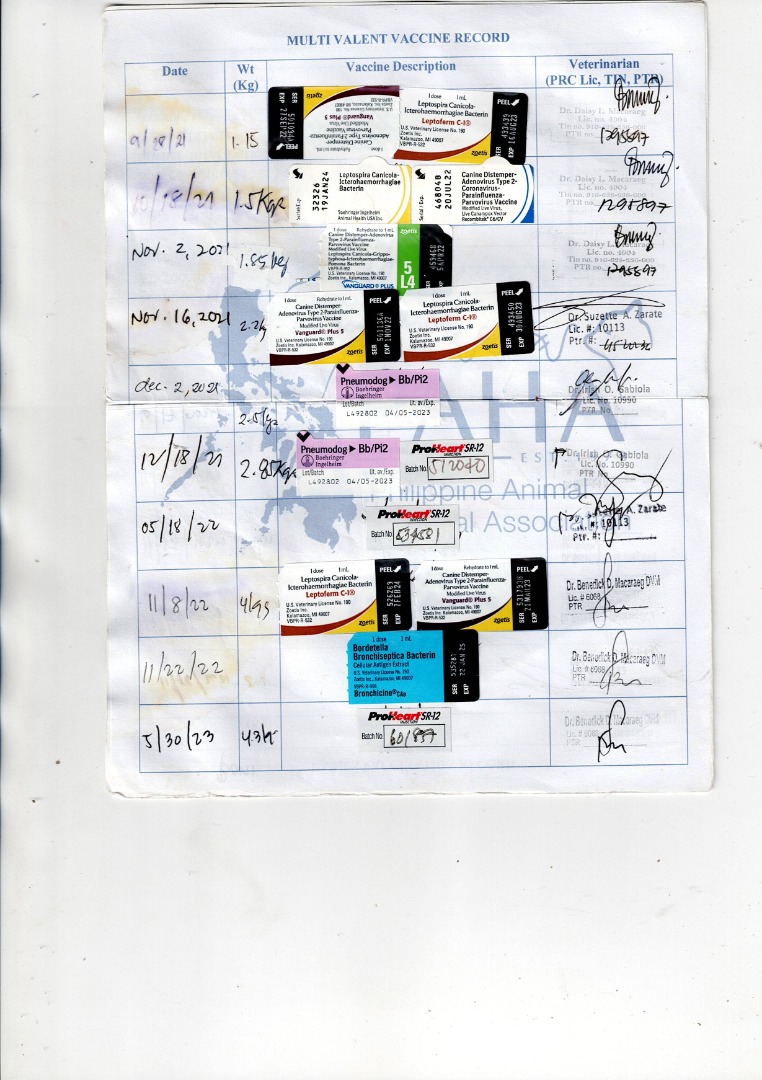 MULTI VALENT VACCINE RECORD
Date
Wt
(Kg)
Vaccine Description
Veterinarian
(PRC Lic, TIN, PTR)
9/28/21
1.15
SER
EXP
Canine Distemper-
Adenovirus Type 2-Parainfluenza-
Parvovirus Vaccine
Modified Live Virus
Vanguard® Plus 5
zoetis
PEEL
1 dose 1 mL
Leptospira Canicola-
Icterohaemorrhagiae Bacterin
Leptoferm C-I®
U.S. Veterinary License No. 190
Zoetis Inc.
Kalamazoo, MI 49007
VBPR-R-532
zoetis
PEEL
SER
EXP
Dr. Daisy L. Macaraeg
Lic. no. 4004
1295897
10/18/21
1.5Kgs
Serial/Exp.
32326
19JAN24
Leptospira Canicola-
Icterohaemorrhagiae
Bacterin
Boehringer Ingelheim
Animal Health USA Inc.
Serial / Exp.
46804B
20JUL22
Canine Distemper-
Adenovirus Type 2-
Coronavirus-
Parainfluenza-
Parvovirus Vaccine
Modified Live Virus,
Live Canarypox Vector
Recombitek® C6/CV
Dr. Daisy L. Macaraeg
Lic. no. 4004
1295897
Nov. 2, 2021
1.85 kg
zoetis
1 dose Rehydrate to 1 mL
Canine Distemper-Adenovirus
Type 2-Parainfluenza-
Parvovirus Vaccine
Modified Live Virus
Leptospira Canicola-Grippo-
typhosa-Icterohaemorrhagiae-
Pomona Bacterin
VBPR-R-552
U.S. Veterinary License No. 190
Zoetis Inc.
Kalamazoo, MI 49007
VANGUARD® PLUS
5
L4
Dr. Daisy L. Macaraeg
Lic. no. 4004
PTR no.
1295897
Nov. 16, 2021
2.2kg
1 dose Rehydrate to 1 mL
Canine Distemper-
Adenovirus Type 2-Parainfluenza-
Parvovirus Vaccine
Modified Live Virus
Vanguard® Plus 5
U.S. Veterinary License No. 190
Zoetis Inc.
Kalamazoo, MI 49007
VBPR-R-532
zoetis
PEEL
SER
EXP 1NOV22
1 dose 1 mL
Leptospira Canicola-
Icterohaemorrhagiae Bacterin
Leptoferm C-I®
U.S. Veterinary License No. 190
Zoetis Inc.
Kalamazoo, MI 49007
VBPR-R-532
zoetis
PEEL
SER 493450
EXP 30AUG23
Dr. Suzette A. Zarate
Lic. #: 10113
Ptr. #:
dec. 2, 2021
Pneumodog ▶ Bb/Pi2
Boehringer
Ingelheim
Lot/Batch Ut. av./Exp.
L492802 04/05-2023
Gabiola
Lic. No. 10990
PTR No.
PAHA
Philippine Animal
12/18/21
2.85Kgs
Pneumodog ▶ Bb/Pi2
Boehringer
Ingelheim
Lot/Batch Ut. av./Exp.
L492802 04/05-2023
ProHeart SR-12
Batch No. 512040
Gabiola
Lic. No. 10990
05/18/22
ProHeart SR-12
Batch No. 534581
A. Zarate
10113
Ptr. #:
11/8/22
1 dose 1 mL
Leptospira Canicola-
Icterohaemorrhagiae Bacterin
Leptoferm C-I®
U.S. Veterinary License No. 190
Zoetis Inc.
Kalamazoo, MI 49007
VBPR-R-532
zoetis
PEEL
SER 526269
EXP 7FEB24
1 dose Rehydrate to 1 mL
Canine Distemper-
Adenovirus Type 2-Parainfluenza-
Parvovirus Vaccine
Modified Live Virus
Vanguard® Plus 5
U.S. Veterinary License No. 190
Zoetis Inc.
Kalamazoo, MI 49007
VBPR-R-532
zoetis
PEEL
SER
EXP
Dr. Benedick D. Macaraeg DVM
Lic. # 6068
PTR
11/22/22
1 dose 1 mL
Bordetella
Bronchiseptica Bacterin
Cellular Antigen Extract
U.S. Veterinary License No. 190
Zoetis Inc., Kalamazoo, MI 49007
Bronchicine® CAe
SER 535281
EXP 22 JAN 25
Dr. Benedick D. Macaraeg DVM
Lic. # 6068
PTR
5/30/23
ProHeart SR-12
Batch No. 601857
Dr. Benedick D. Macaraeg DVM
Lic. # 6068
PTR